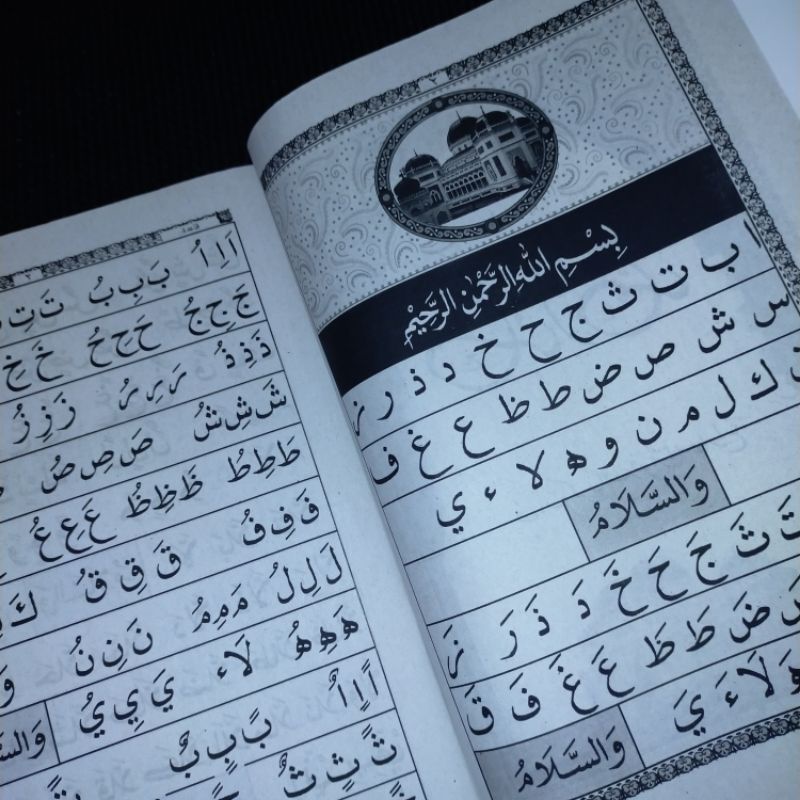 ٢
بِسْمِ اللهِ الرَّحْمٰنِ الرَّحِيْمِ
ا ب ت ث ج ح خ د ذ ر ز
س ش ص ض ط ظ ع غ ف
ك ل م ن و ه لا ء ي
وَالسَّلَامُ
تَ ثَ جَ حَ خَ دَ ذَ رَ زَ
ضَ طَ ظَ عَ غَ فَ قَ
هَ لَا ءَ يَ
وَالسَّلَامُ
اَ اِ اُ بَ بِ بُ تَ تِ
جَ جِ جُ حَ حِ حُ خَ خِ
ذَ ذِ ذُ رَ رِ رُ زَ زِ زُ
شَ شِ شُ صَ صِ صُ
طَ طِ طُ ظَ ظِ ظُ عَ عِ عُ
فَ فِ فُ قَ قِ قُ كَ
لَ لِ لُ مَ مِ مُ نَ نِ نُ وَ
هَ هِ هُ لَاء يَ يِ يُ
اً اٍ اٌ بً بٍ بٌ
ثً ثٍ ثٌ